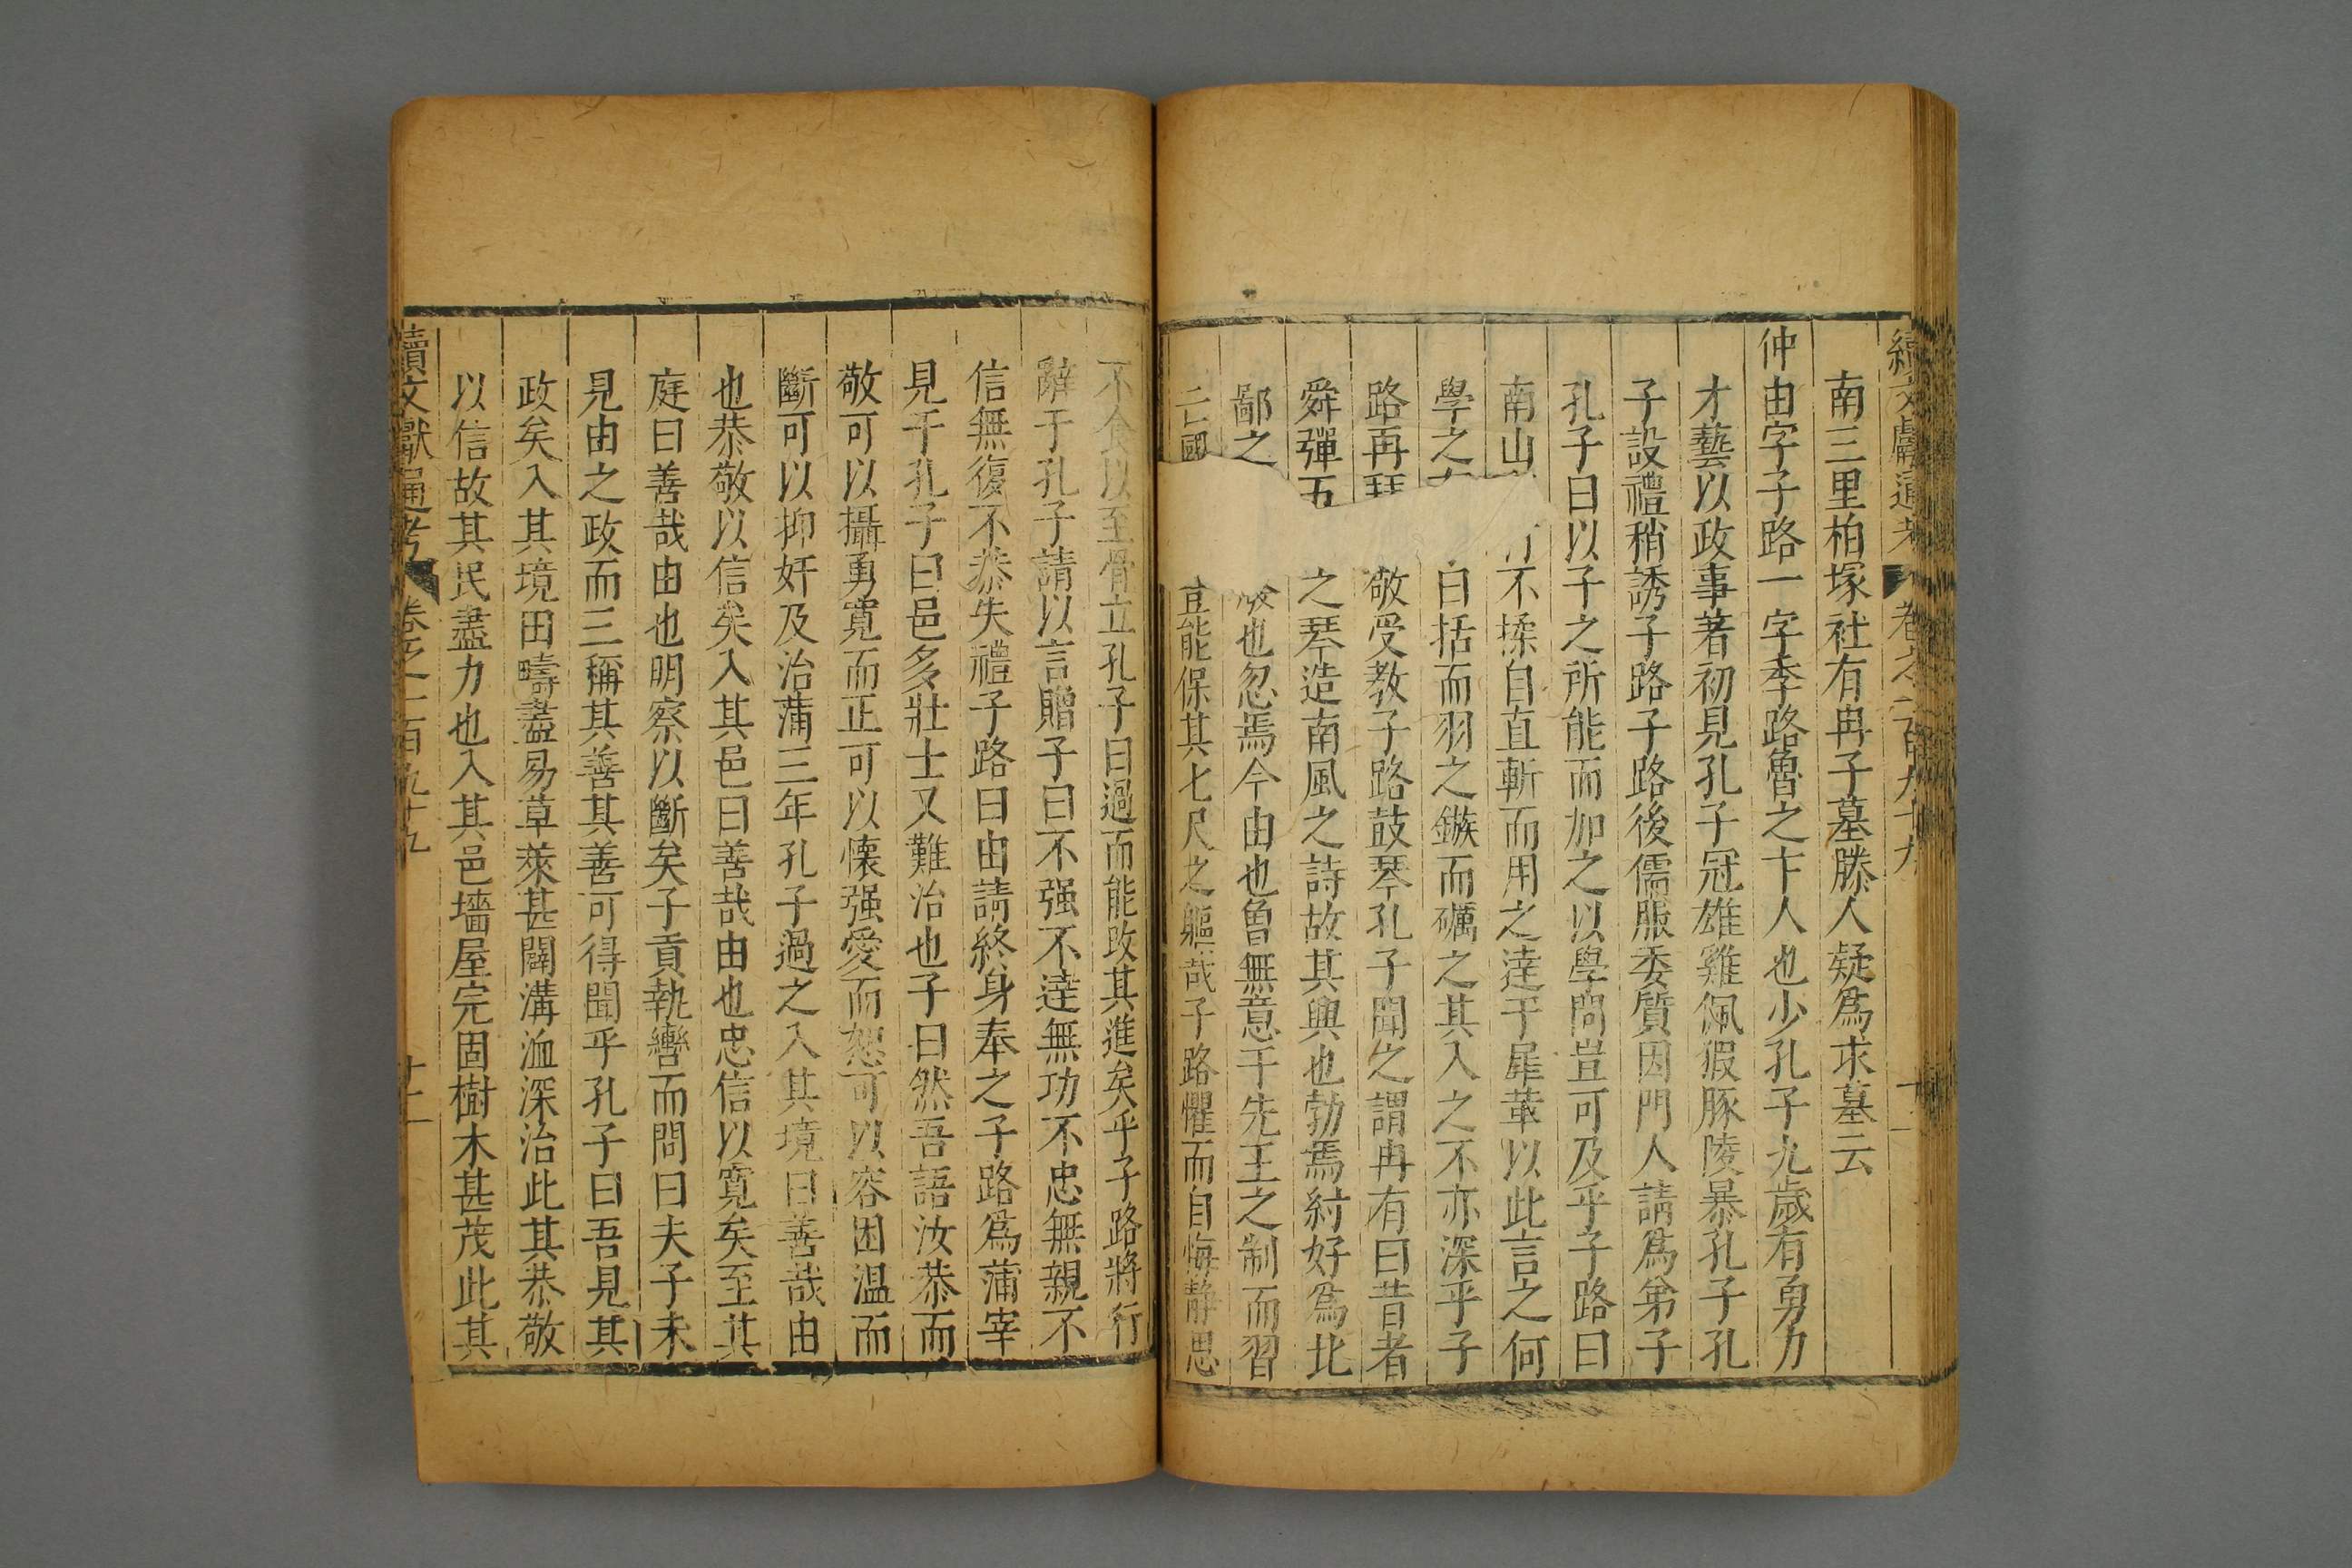 續文獻通考 卷之一百九十九 十一
南三里柏塚社有冉子墓滕人疑爲求墓云
仲由字子路一字季路魯之卞人也少孔子九歲有勇力
才藝以政事著初見孔子冠雄雞佩猳豚陵暴孔子孔
子設禮稍誘子路子路後儒服委質因門人請爲弟子
孔子曰以子之所能而加之以學問豈可及乎子路曰
南山 不揉自直斬而用之達于犀革以此言之何
學之 曰括而羽之鏃而礪之其入之不亦深乎子
路再 敬受教子路鼓琴孔子聞之謂冉有曰昔者
舜彈五 之琴造南風之詩故其興也勃焉紂好爲北
鄙之 也忽焉今由也曾無意于先王之制而習
亡國 豈能保其七尺之軀哉子路懼而自悔靜思
不食以至骨立孔子曰過而能改其進矣乎子路將行
辭于孔子請以言贈子曰不强不達無功不忠無親不
信無復不恭失禮子路曰由請終身奉之子路爲蒲宰
見于孔子曰邑多壯士又難治也子曰然吾語汝恭而
敬可以攝勇寬而正可以懷强愛而恕可以容困温而
斷可以抑奸及治蒲三年孔子過之入其境曰善哉由
也恭敬以信矣入其邑曰善哉由也忠信以寬矣至其
庭曰善哉由也明察以斷矣子貢執轡而問曰夫子未
見由之政而三稱其善其善可得聞乎孔子曰吾見其
政矣入其境田疇盡易草萊甚闢溝洫深治此其恭敬
以信故其民盡力也入其邑墻屋完固樹木甚茂此其
續文獻通考 卷之一百九十九 十二